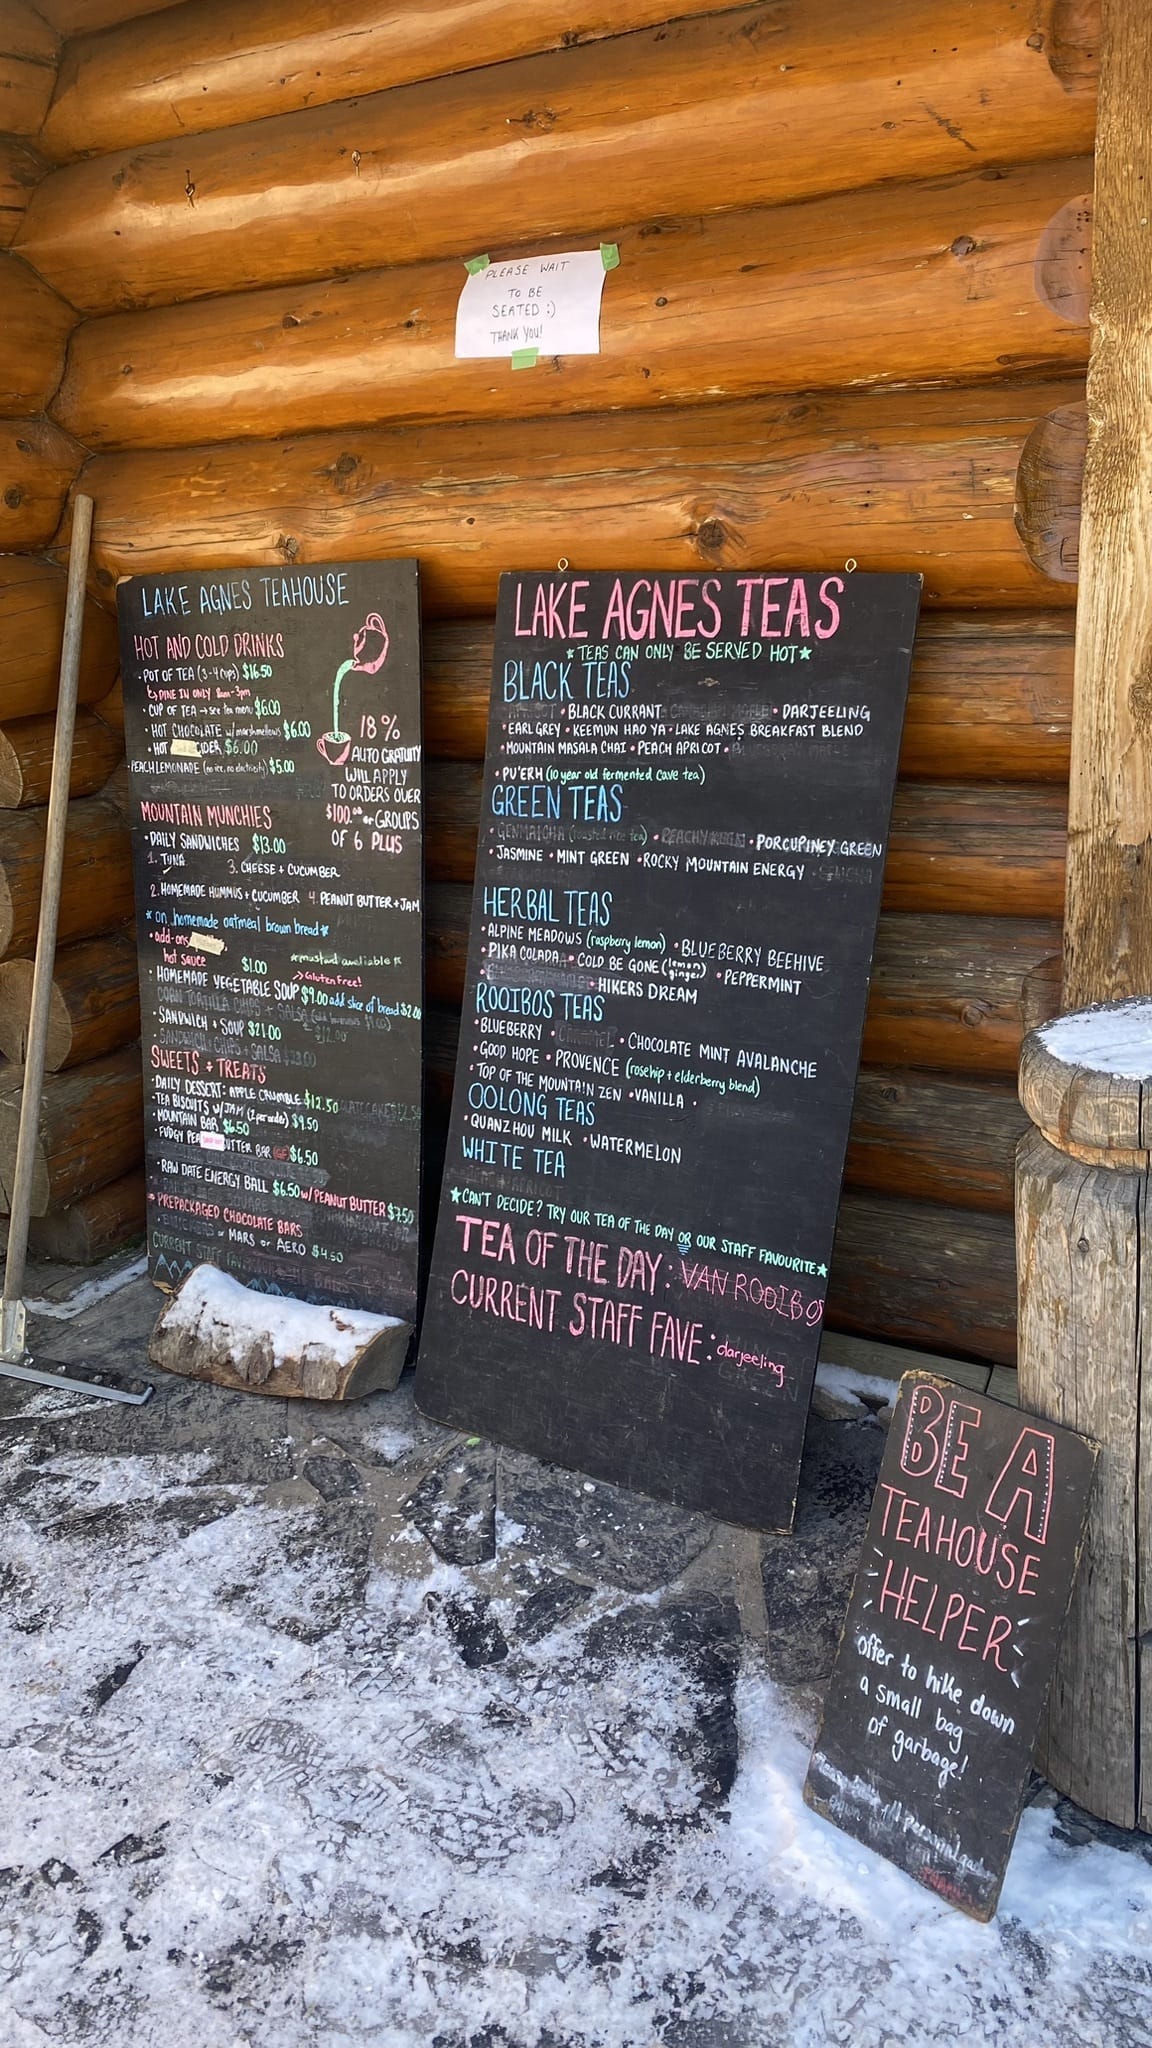 PLEASE WAIT
TO BE
SEATED :)
THANK YOU!
LAKE AGNES TEAHOUSE
HOT AND COLD DRINKS
• POT OF TEA (3-4 cups) $16.50
DINE IN ONLY 8am-3pm
• CUP OF TEA → see tea menu $6.00
HOT CHOCOLATE w/marshmellows $6.00
• HOT CIDER $6.00
PEACH LEMONADE (no ice, no electricity) $5.00
18%
AUTO GRATUITY
WILL APPLY
TO ORDERS OVER
$100.00 or GROUPS
OF 6 PLUS
MOUNTAIN MUNCHIES
• DAILY SANDWICHES $13.00
1. TUNA 3. CHEESE + CUCUMBER
2. HOMEMADE HUMMUS + CUCUMBER 4. PEANUT BUTTER + JAM
* on homemade oatmeal brown bread *
• add-ons
hot sauce $1.00
* mustard available *
> Gluten free!
• HOMEMADE VEGETABLE SOUP $9.00 add slice of bread $2.00
CORN TORTILLA CHIPS + SALSA
• SANDWICH + SOUP $21.00
SANDWICH + CHIPS + SALSA
SWEETS + TREATS
• DAILY DESSERT: APPLE CRUMBLE $12.50
• TEA BISCUITS W/JAM (2 per order) $9.50
• MOUNTAIN BAR $6.50
• FUDGY BUTTER BAR $6.50
• RAW DATE ENERGY BALL $6.50 w/ PEANUT BUTTER $7.50
PREPACKAGED CHOCOLATE BARS
MARS or AERO $4.50
CURRENT STAFF
LAKE AGNES TEAS
* TEAS CAN ONLY BE SERVED HOT *
BLACK TEAS
• BLACK CURRANT • DARJEELING
• EARL GREY • KEEMUN HAO YA • LAKE AGNES BREAKFAST BLEND
• MOUNTAIN MASALA CHAI • PEACH APRICOT •
• PU'ERH (10 year old fermented cave tea)
GREEN TEAS
• GENMAICHA (roasted rice tea) • • PORCUPINEY GREEN
• JASMINE • MINT GREEN • ROCKY MOUNTAIN ENERGY
HERBAL TEAS
• ALPINE MEADOWS (raspberry lemon) • BLUEBERRY BEEHIVE
• PIKA COLADA • COLD BE GONE (lemon ginger) • PEPPERMINT
• HIKERS DREAM
ROOIBOS TEAS
• BLUEBERRY • CARAMEL • CHOCOLATE MINT AVALANCHE
• GOOD HOPE • PROVENCE (rosehip + elderberry blend)
• TOP OF THE MOUNTAIN ZEN • VANILLA •
OOLONG TEAS
• QUANZHOU MILK • WATERMELON
WHITE TEA
★ CAN'T DECIDE? TRY OUR TEA OF THE DAY OR OUR STAFF FAVOURITE ★
TEA OF THE DAY: VAN ROOIBOS
CURRENT STAFF FAVE: darjeeling
GREEN
BE A
TEAHOUSE
HELPER
offer to hike down
a small bag
of garbage!